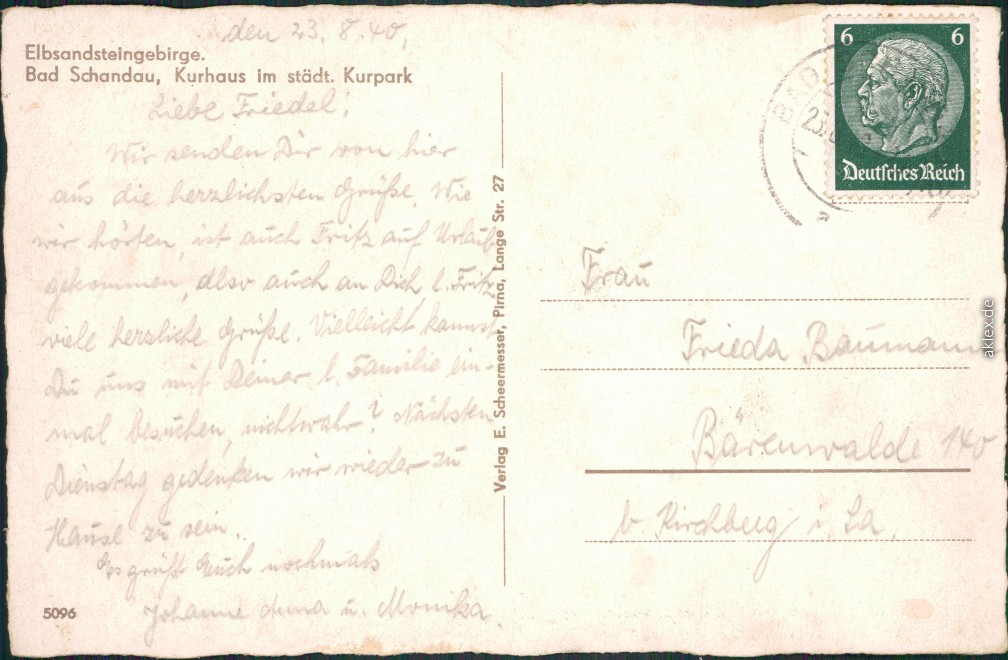 den 23. 8. 40.
Elbsandsteingebirge.
Bad Schandau, Kurhaus im städt. Kurpark
Liebe Friedel!
Wir senden Dir von hier
aus die herzlichsten Grüße. Wie
wir hörten, ist auch Fritz auf Urlaub
gekommen, also auch an Dich, l. Fritz
viele herzliche Grüße. Vielleicht kannst
Du uns mit Deiner l. Familie ein-
mal besuchen, nichtwahr? Nächsten
Dienstag gedenken wir wieder zu
Hause zu sein.
Es grüßt Euch nochmals
Johanne Anna u. Monika.
5096
Verlag E. Scheermesser, Pirna, Lange Str. 27
BAD
23.
6 6
Deutsches Reich
Frau
Frieda Baumann
Bärenwalde 140
b. Kirchberg i. Sa.
aklex.de